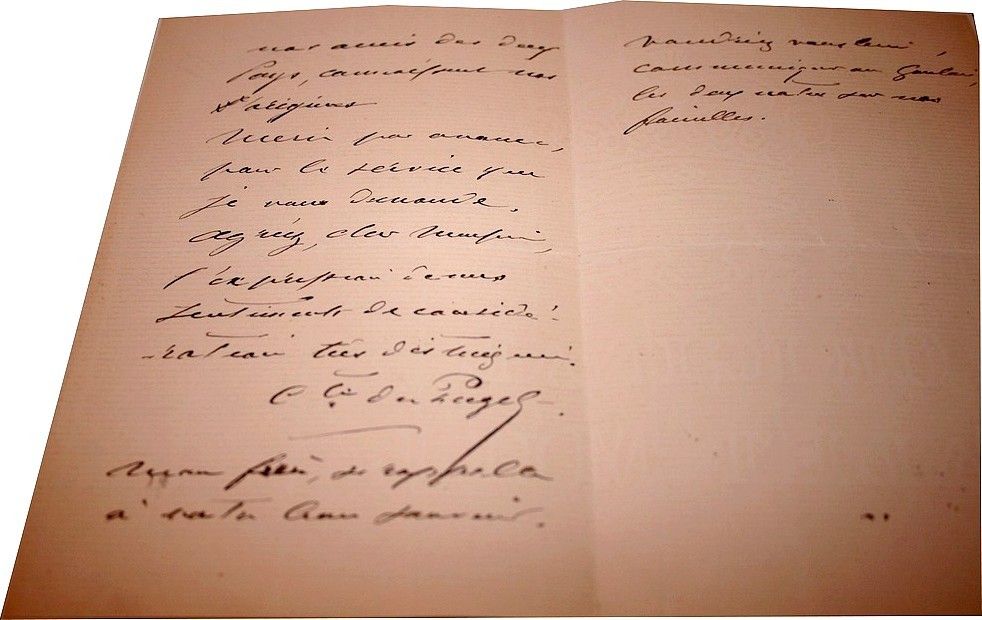 nos amis des deux
Pays, connaissent nos
origines
Merci par avance,
pour le service que
je vous demande.
Agréez, cher Monsieur,
l'expression de mes
sentiments de considé-
-ration très distinguée.
Cte du Puget.
Mon frère, se rappelle
à votre bon souvenir.
voudriez vous bien,
communiquer au Gaulois,
les deux notes sur nos
familles.